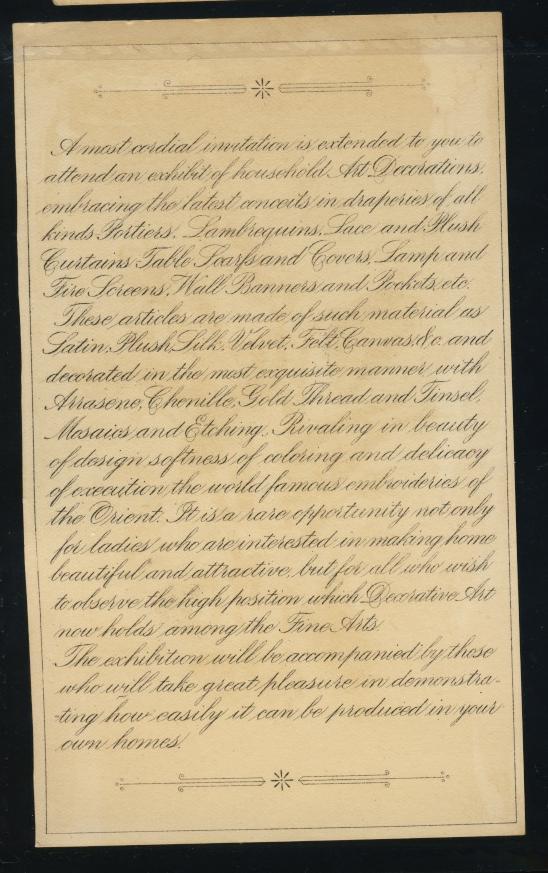 A most cordial invitation is extended to you to
attend an exhibit of household Art Decorations,
embracing the latest conceits in draperies of all
kinds Portiers, Lambrequins, Lace and Plush
Curtains Table Scarfs and Covers, Lamp and
Fire Screens, Wall Banners and Pockets, etc.
These articles are made of such material as
Satin, Plush, Silk, Velvet, Felt, Canvas, &c. and
decorated in the most exquisite manner with
Arrasene, Chenille, Gold Thread and Tinsel,
Mosaics and Etching, Rivaling in beauty
of design softness of coloring and delicacy
of execution the world famous embroideries of
the Orient. It is a rare opportunity not only
for ladies who are interested in making home
beautiful and attractive, but for all who wish
to observe the high position which Decorative Art
now holds among the Fine Arts
The exhibition will be accompanied by those
who will take great pleasure in demonstra-
-ting how easily it can be produced in your
own homes.